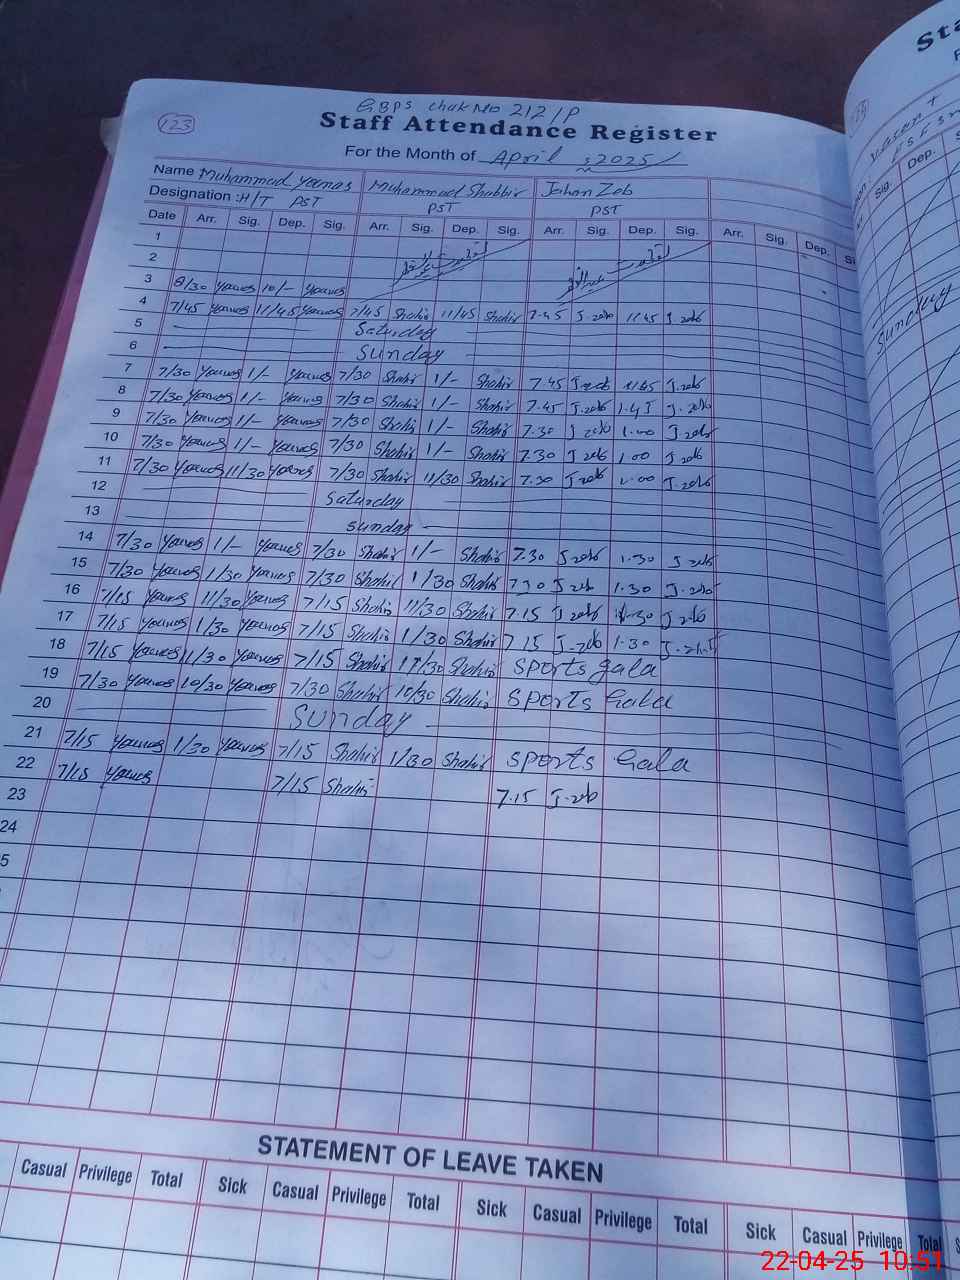 GBPS chak No 212/P
123
Staff Attendance Register
For the Month of April, 2025
Name Muhammad Younas Muhammad Shabbir Jahan Zeb
Designation : H/T PST PST PST
Date Arr. Sig. Dep. Sig. Arr. Sig. Dep. Sig. Arr. Sig. Dep. Sig. Arr. Sig. Dep.
1
2
3 8/30 Younas 10/- Younas
4 7/45 Younas 11/45 Younas 7/45 Shabir 11/45 Shabir 7.45 J.zeb 11.45 J.zeb
5 Saturday
6 Sunday
7 7/30 Younas 1/- Younas 7/30 Shabir 1/- Shabir 7.45 J.zeb J.zeb
8 7/30 Younas 1/- Younas 7/30 Shabir 1/- Shabir 7.45 J.zeb 1.45 J.zeb
9 7/30 Younas 1/- Younas 7/30 Shabir 1/- Shabir 7.30 J zeb 1.00 J.zeb
10 7/30 Younas 1/- Younas 7/30 Shabir 1/- Shabir 7.30 J zeb 1.00 J zeb
11 7/30 Younas 11/30 Younas 7/30 Shabir 11/30 Shabir 7.30 J zeb J.zeb
12 Saturday
13 Sunday
14 7/30 Younas 1/- Younas 7/30 Shabir 1/- Shabir 7.30 J zeb 1.30 J.zeb
15 7/30 Younas 1/30 Younas 7/30 Shabir 1/30 Shabir 7.30 J zeb 1.30 J.zeb
16 7/15 Younas 11/30 Younas 7/15 Shabir 11/30 Shabir 7.15 J zeb J.zeb
17 7/15 Younas 1/30 Younas 7/15 Shabir 1/30 Shabir 7.15 J.zeb 1.30
18 7/15 Younas 11/30 Younas 7/15 Shabir 11/30 Shabir Sports gala
19 7/30 Younas 10/30 Younas 7/30 Shabir 10/30 Shabir Sports Gala
20 Sunday
21 7/15 Younas 1/30 Younas 7/15 Shabir 1/30 Shabir Sports Gala
22 7/15 Younas 7/15 Shabir 7.15 J.zeb
23
24
STATEMENT OF LEAVE TAKEN
Casual Privilege Total Sick Casual Privilege Total Sick Casual Privilege Total Sick Casual Privilege Total
Dep.
Sig.
Sunday
22-04-25 10:51